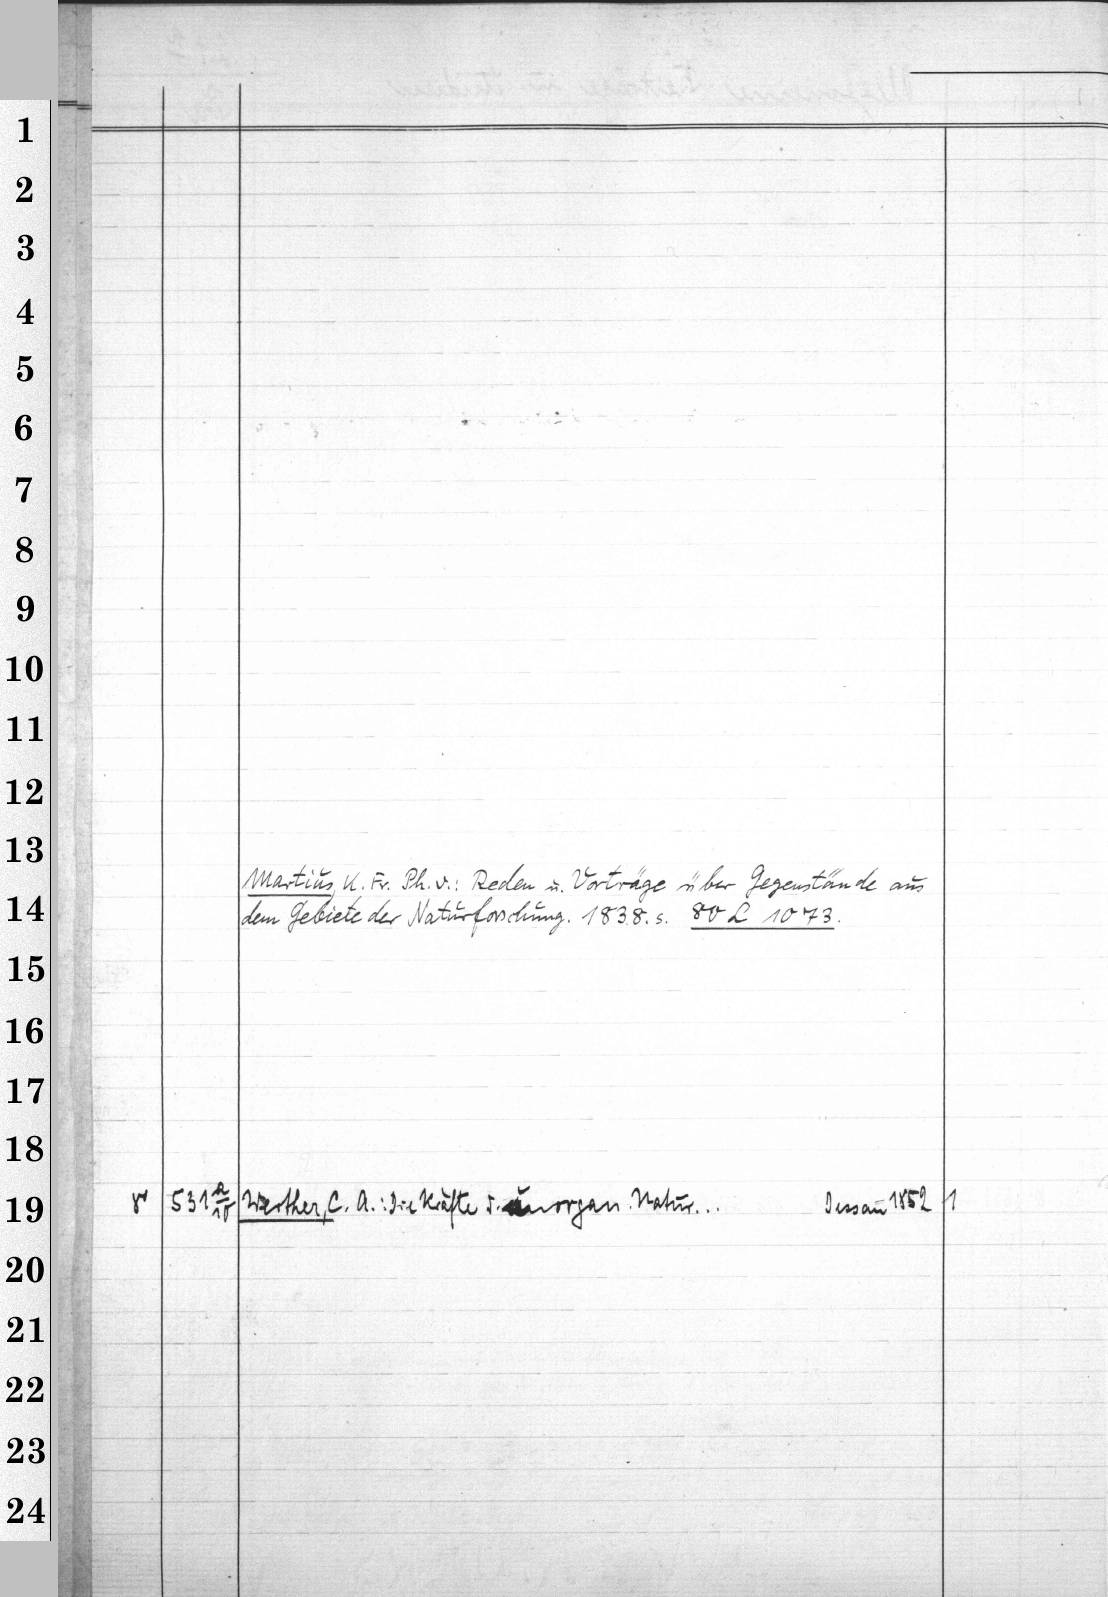 1
2
3
4
5
6
7
8
9
10
11
12
13
Martius, K. Fr. Ph. v.: Reden u. Vorträge über Gegenstände aus
14
dem Gebiete der Naturforschung. 1838. s. 80 L 1073.
15
16
17
18
19
8° 531 a/10 Werther, C. A.: Die Kräfte d. unorgan. Natur... Dessau 1852 1
20
21
22
23
24